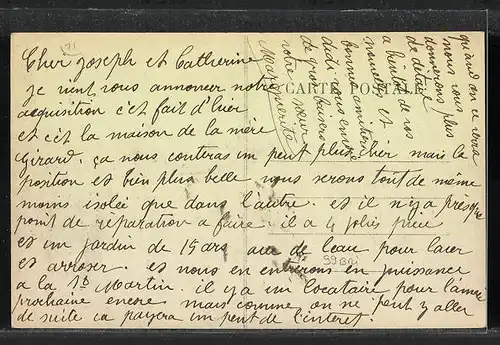 Cher Joseph et Catherine
je vint vous annoncer notre
acquisition c'et fait d'hier
et c'et la maison de la mère
Girard. ça nous conteras un peut plus cher mais la
position et bien plus belle nous serons tout de même
moins isolée que dans l'autre. et il n'y a presque
point de réparation a faire. il a 4 jolies pieu
et un jardin de 15 ars avec de l'eau pour laver
et arroser. et nous en entrerons en puissance
a la St Martin. il y a un locataire pour l'année
prochaine encore mais comme on ne peut y aller
de suite ca payera un peut de l'interet.
CARTE POSTALE
quand on ce sera
nous vous
donnerons plus
de détails
a bientôt de vos
nouvelles et
bonnes amitiés
didi vous envoie
de gros baisers
votre sœur
Marguerite